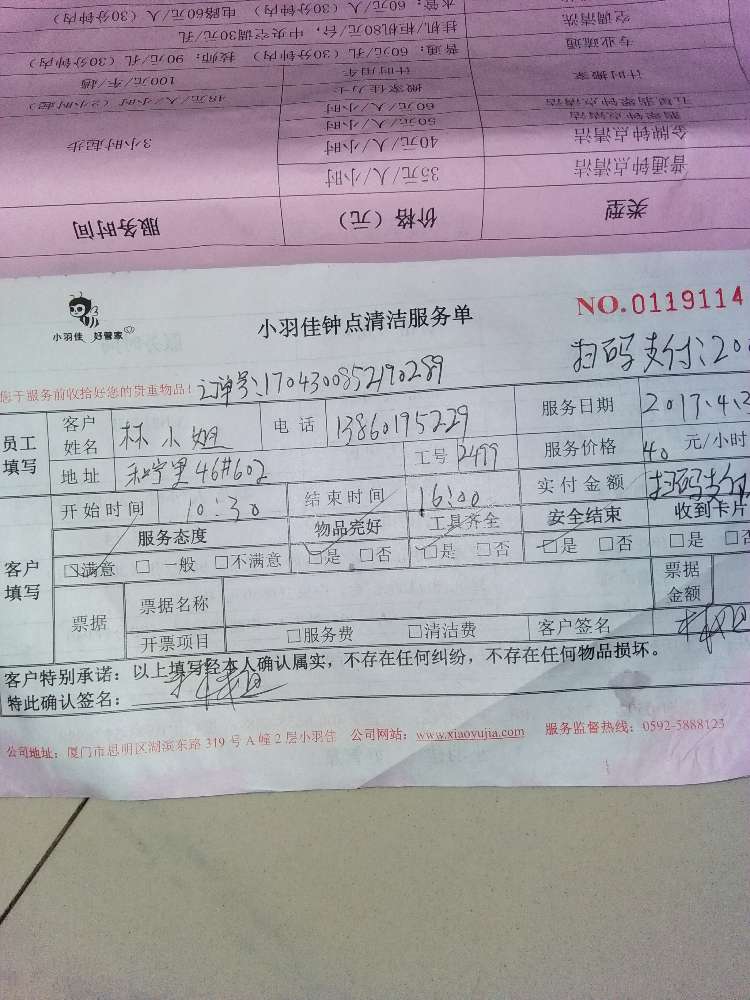 水管：60元/人（30分钟内） 电路60元/人（30分钟内）
空调清洗 挂机/柜机80元/台，中央空调30元/孔
专业疏通 普通：60元/孔（30分钟内） 技师：90元/孔（30分钟内）
计时搬家 计时用车 100元/车/趟
搬家佳力士 48元/人/小时（2小时起）
60元/人/小时
50元/人/小时
金牌钟点清洁 40元/人/小时 3小时起步
普通钟点清洁 35元/人/小时
类型 价格（元） 服务时间
小羽佳 好管家
小羽佳钟点清洁服务单
NO.0119114
扫码支付：20
您于服务前收拾好您的贵重物品！ 订单号：1704300852190289
员工填写 客户姓名 林小姐 电话 13860195229 服务日期 2017.4.2
地址 46#602 工号 2499 服务价格 40 元/小时
开始时间 10:30 结束时间 16:00 实付金额 扫码支付
客户填写 服务态度 物品完好 工具齐全 安全结束 收到卡片
□满意 □一般 □不满意 □是 □否 □是 □否 □是 □否 □是 □否
票据 票据名称 票据金额
开票项目 □服务费 □清洁费 客户签名
客户特别承诺：以上填写经本人确认属实，不存在任何纠纷，不存在任何物品损坏。
特此确认签名：
公司地址：厦门市思明区湖滨东路 319 号 A 幢 2 层小羽佳 公司网站：www.xiaoyujia.com 服务监督热线：0592-5888123